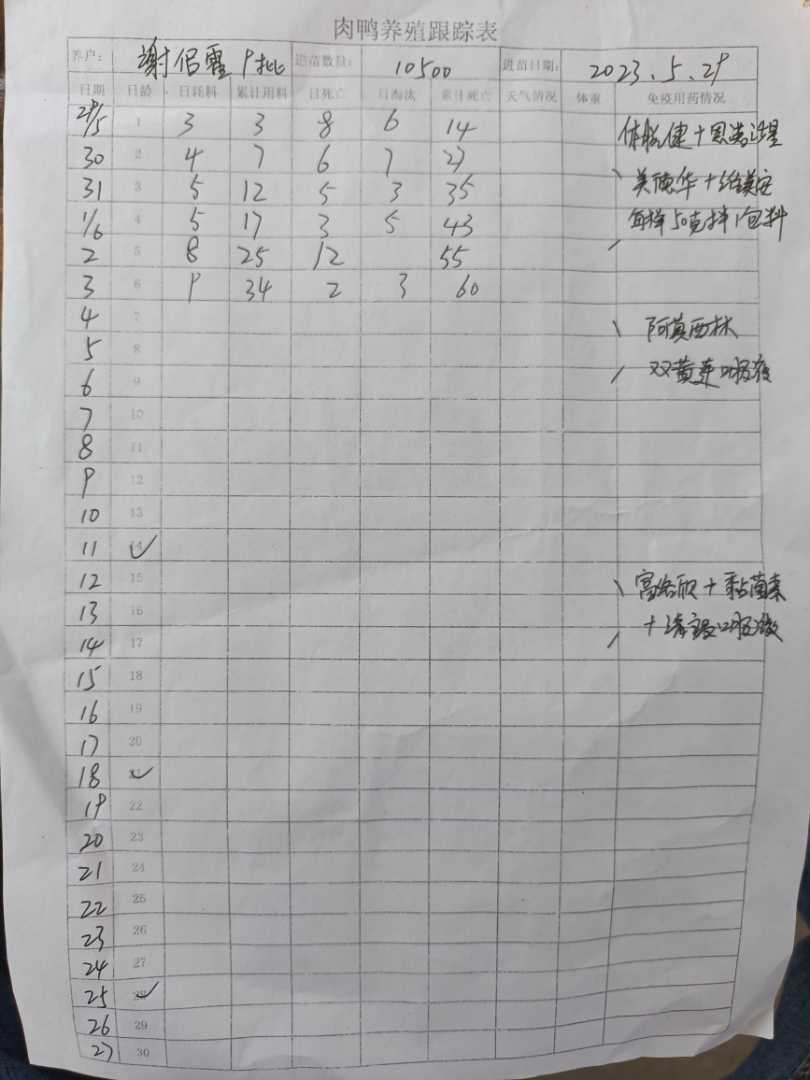 肉鸭养殖跟踪表
养户: 谢侣霞 9批 进苗数量: 10500 进苗日期: 2023.5.29
日期 日龄 日耗料 累计用料 日死亡 日淘汰 累计死亡 天气情况 体重 免疫用药情况
29/5 1 3 3 8 6 14
30 2 4 7 6 7 27
31 3 5 12 5 3 35
1/6 4 5 17 3 5 43 每样50克拌1包料
2 5 8 25 12 55
3 6 9 34 2 3 60
4 7 阿莫西林
5 8 双黄连口服液
6 9
7 10
8 11
9 12
10 13
11 14
12 15 +黏菌素
13 16 口服液
14 17
15 18
16 19
17 20
18
19 22
20 23
21 24
22 25
23 26
24 27
25 28
26 29
27 30